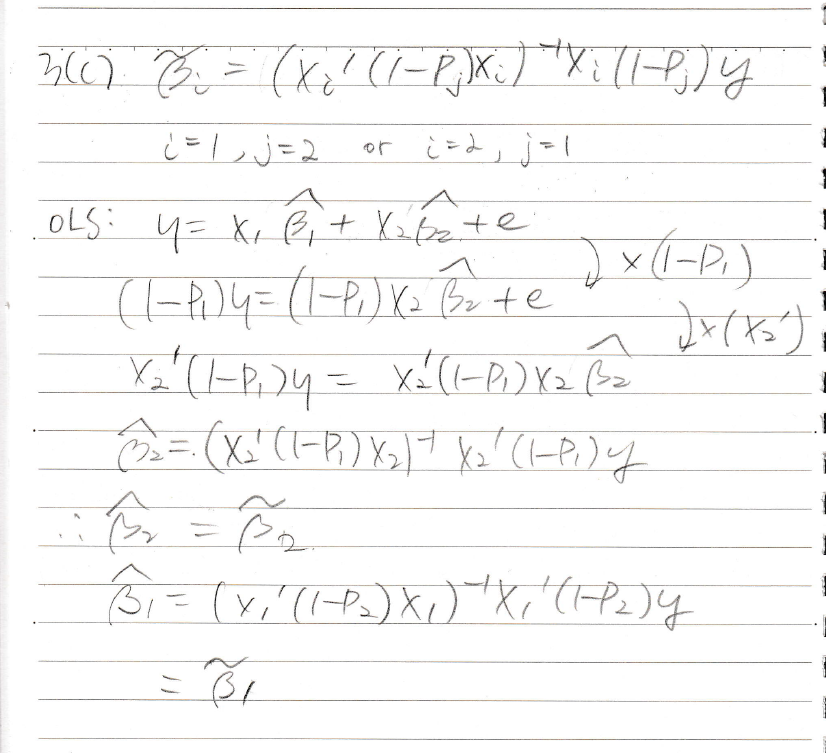 3(c) β̃ᵢ = (Xᵢ'(1-Pⱼ)Xᵢ)⁻¹Xᵢ(1-Pⱼ)y
i=1, j=2 or i=2, j=1
OLS: y = X₁β̂₁ + X₂β̂₂ + e
(1-P₁)y = (1-P₁)X₂β̂₂ + e ↓ × (1-P₁)
X₂'(1-P₁)y = X₂'(1-P₁)X₂β̂₂ ↓ × (X₂')
β̂₂ = (X₂'(1-P₁)X₂)⁻¹ X₂'(1-P₁)y
∴ β̂₂ = β̃₂
β̂₁ = (X₁'(1-P₂)X₁)⁻¹X₁'(1-P₂)y
= β̃₁